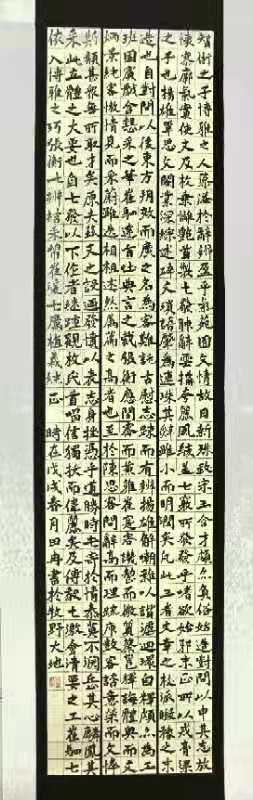 智術之子博雅之人藻溢於辭辯盈乎氣苑囿文情故日新殊致宋玉含才頗亦負俗始造對問以申其志放
懷寥廓氣實使文及枚乘摛艷首製七發腴辭雲構夸麗風駭蓋七竅所發發乎嗜欲始邪末正所以戒膏粱
之子也揚雄覃思文閣業深綜述碎文瑣語肇為連珠其辭雖小而明潤矣凡此三者文章之枝派暇豫之末
造也自對問以後東方朔效而廣之名為客難託古慰志疎而有辨揚雄解嘲雜以諧謔迴環自釋頗亦為工
班固賓戲含懿采之華崔駰達旨吐典言之裁張衡應間密而兼雅崔寔客譏整而微質蔡邕釋誨體奧而文
炳景純客傲情見而采蔚雖迭相祖述然屬篇之高者也至於陳思客問辭高而理疎庾敳客咨意榮而文悴
斯類甚眾無所取才矣原夫茲文之設迺發憤以表志身挫憑乎道勝時屯寄於情泰莫不淵岳其心麟鳳其
采此立體之大要也自七發以下作者繼踵觀枚氏首唱信獨拔而偉麗矣及傅毅七激會清要之工崔駰七
依入博雅之巧張衡七辨結采綿靡崔瑗七厲植義純正 時在戊戌春月田冉書於牧野大地